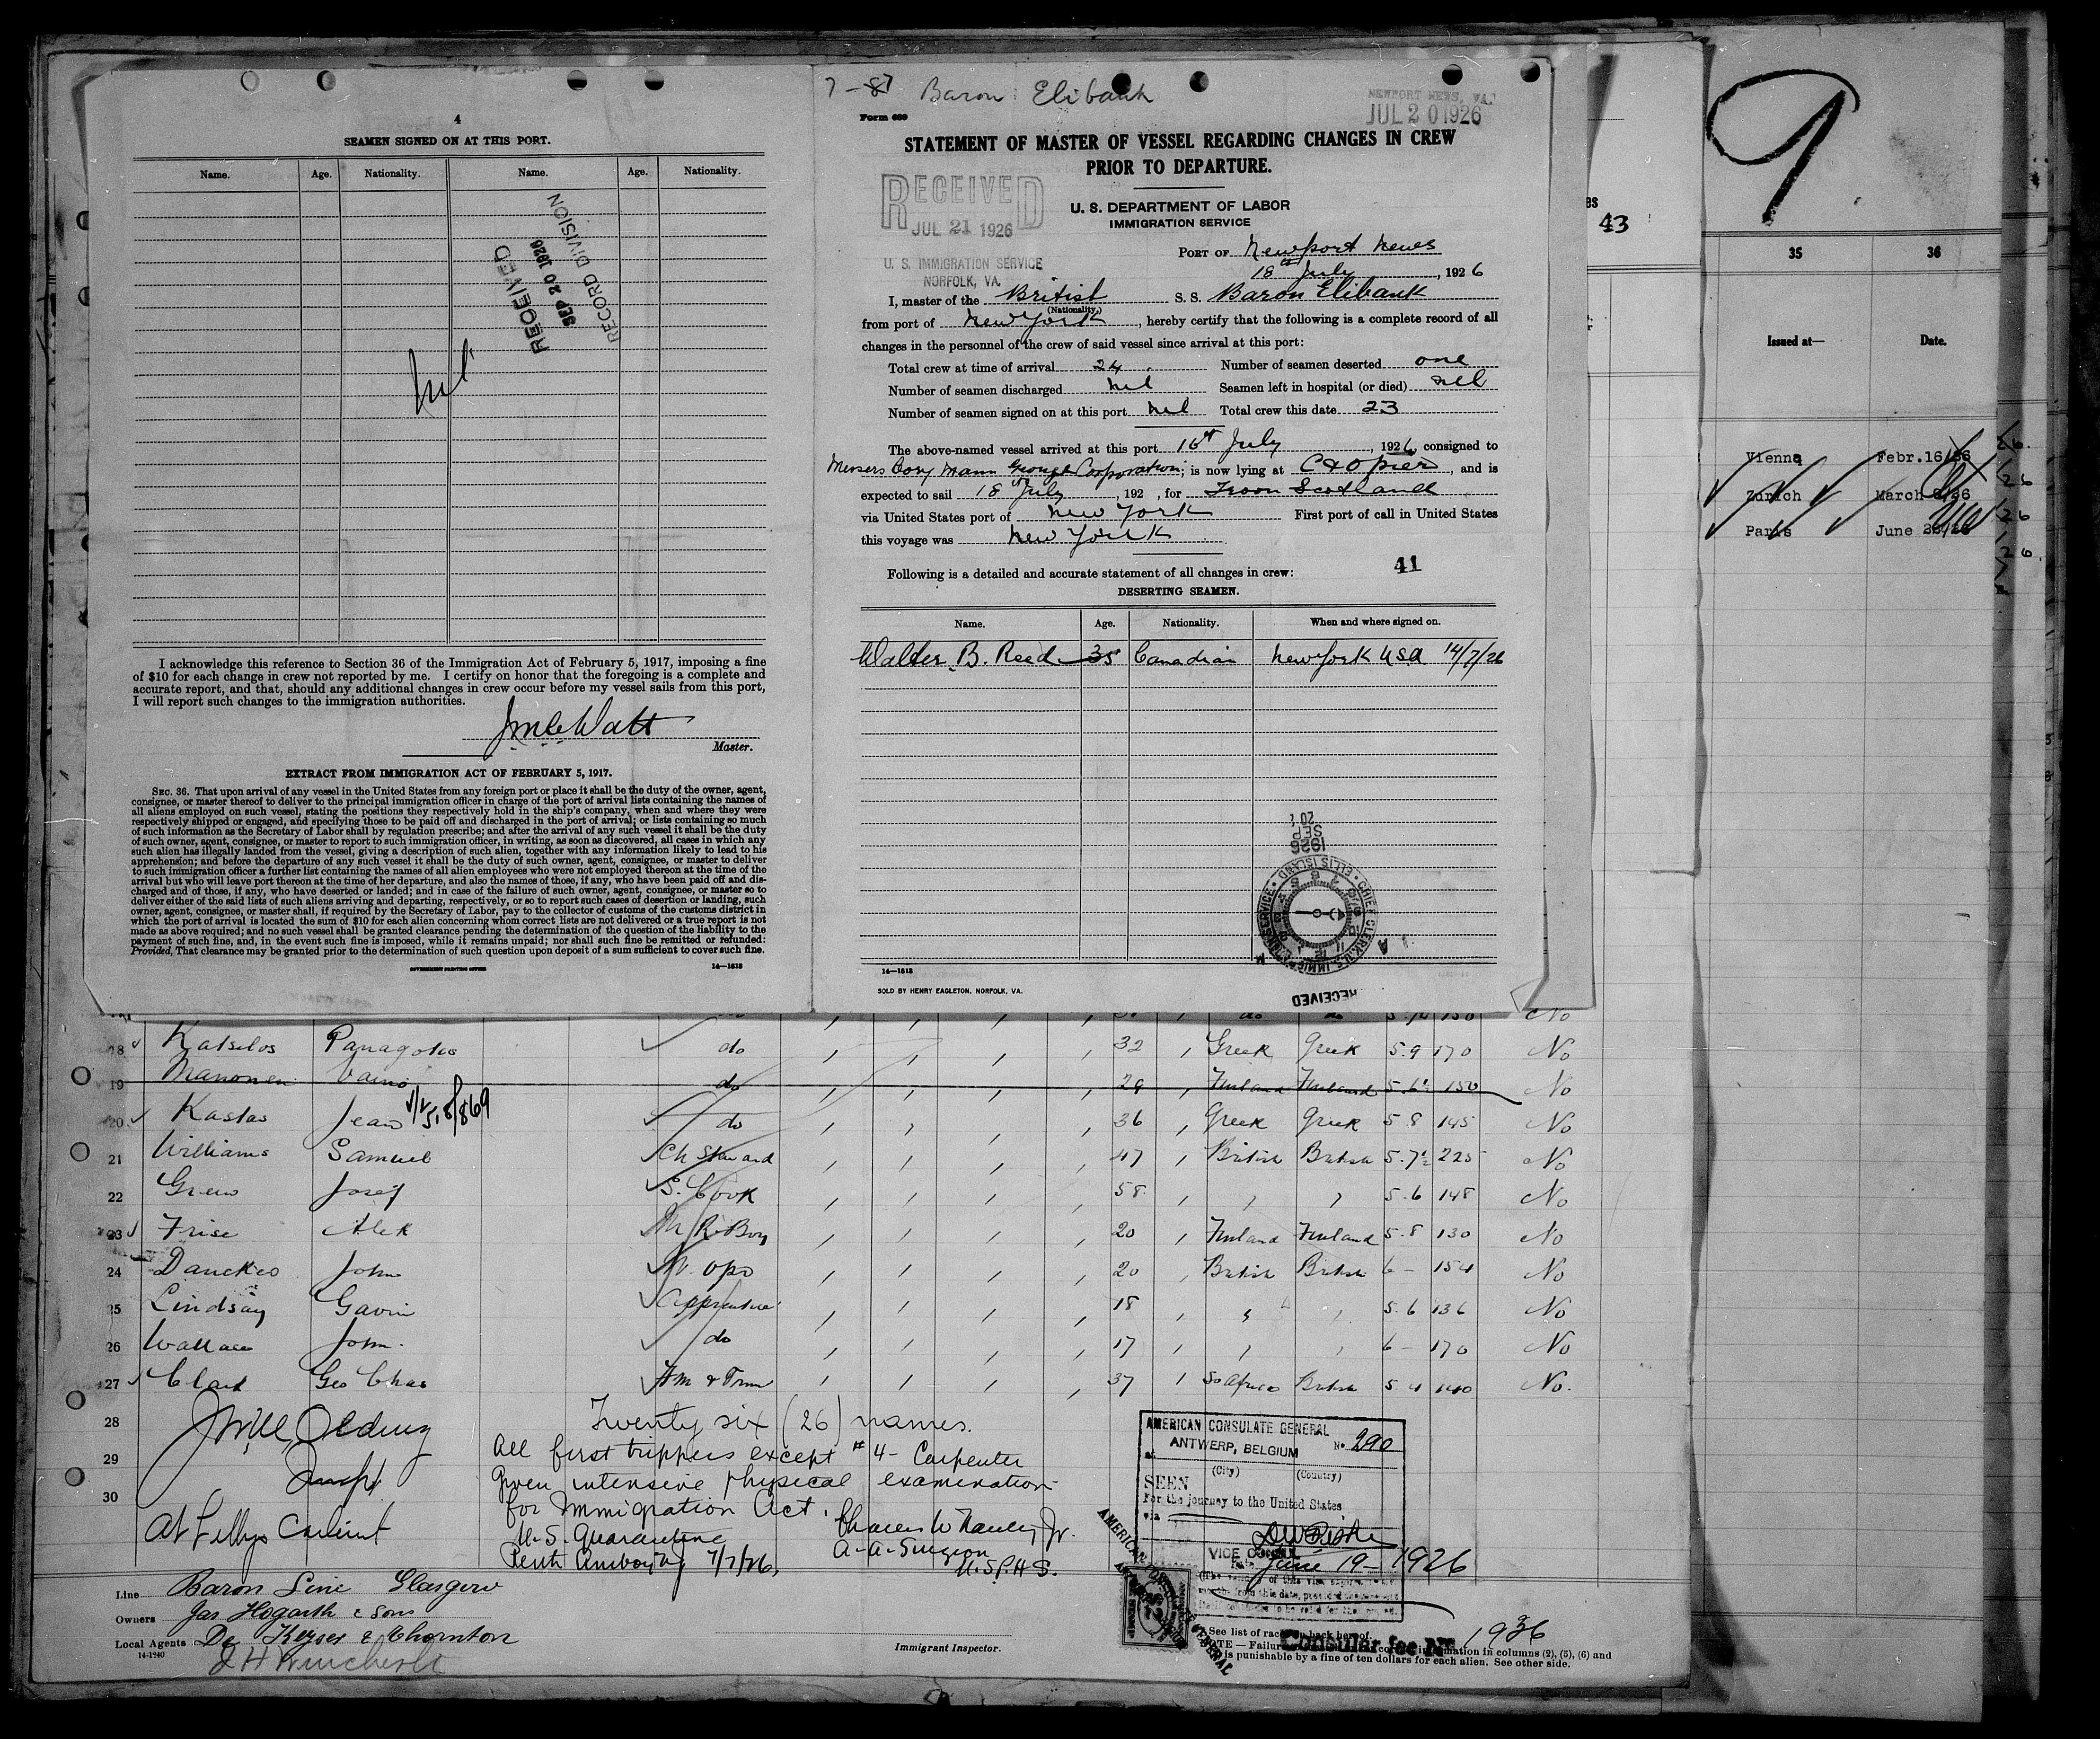 4
SEAMEN SIGNED ON AT THIS PORT.
Name. Age. Nationality. Name. Age. Nationality.
RECEIVED
SEP 20 1926
RECORD DIVISION
nil
I acknowledge this reference to Section 36 of the Immigration Act of February 5, 1917, imposing a fine
of $10 for each change in crew not reported by me. I certify on honor that the foregoing is a complete and
accurate report, and that, should any additional changes in crew occur before my vessel sails from this port,
I will report such changes to the immigration authorities.
Watt
Master.
EXTRACT FROM IMMIGRATION ACT OF FEBRUARY 5, 1917.
SEC. 36. That upon arrival of any vessel in the United States from any foreign port or place it shall be the duty of the owner, agent,
consignee, or master thereof to deliver to the principal immigration officer in charge of the port of arrival lists containing the names of
all aliens employed on such vessel, stating the positions they respectively hold in the ship's company, when and where they were
respectively shipped or engaged, and specifying those to be paid off and discharged in the port of arrival; or lists containing so much
of such information as the Secretary of Labor shall by regulation prescribe; and after the arrival of any such vessel it shall be the duty
of such owner, agent, consignee, or master to report to such immigration officer, in writing, as soon as discovered, all cases in which any
such alien has illegally landed from the vessel, giving a description of such alien, together with any information likely to lead to his
apprehension; and before the departure of any such vessel it shall be the duty of such owner, agent, consignee, or master to deliver
to such immigration officer a further list containing the names of all alien employees who were not employed thereon at the time of the
arrival but who will leave port thereon at the time of her departure, and also the names of those, if any, who have been paid off and dis-
charged and of those, if any, who have deserted or landed; and in case of the failure of such owner, agent, consignee, or master so to
deliver either of the said lists of such aliens arriving and departing, respectively, or so to report such cases of desertion or landing, such
owner, agent, consignee, or master shall, if required by the Secretary of Labor, pay to the collector of customs of the customs district in
which the port of arrival is located the sum of $10 for each alien concerning whom correct lists are not delivered or a true report is not
made as above required; and no such vessel shall be granted clearance pending the determination of the question of the liability to the
payment of such fine, and, in the event such fine is imposed, while it remains unpaid; nor shall such fine be remitted or refunded:
Provided, That clearance may be granted prior to the determination of such question upon deposit of a sum sufficient to cover such fine.
GOVERNMENT PRINTING OFFICE 14—1613
7-87 Baron Elibank
NEWPORT NEWS, VA.
JUL 20 1926
Form 689
STATEMENT OF MASTER OF VESSEL REGARDING CHANGES IN CREW
PRIOR TO DEPARTURE.
RECEIVED
JUL 21 1926
U. S. IMMIGRATION SERVICE
NORFOLK, VA.
U. S. DEPARTMENT OF LABOR
IMMIGRATION SERVICE
PORT OF Newport News
18th July, 1926
I, master of the British S. S. Baron Elibank
(Nationality.)
from port of New York, hereby certify that the following is a complete record of all
changes in the personnel of the crew of said vessel since arrival at this port:
Total crew at time of arrival 24. Number of seamen deserted one
Number of seamen discharged nil Seamen left in hospital (or died) nil
Number of seamen signed on at this port nil Total crew this date 23
The above-named vessel arrived at this port 16th July, 1926, consigned to
Messers Cory Mann George Corporation; is now lying at C & O pier, and is
expected to sail 18th July, 192 , for Troon Scotland
via United States port of New York First port of call in United States
this voyage was New York
Following is a detailed and accurate statement of all changes in crew: 41
DESERTING SEAMEN.
Name. Age. Nationality. When and where signed on.
Walter B. Reed 35 Canadian New York USA 14/7/26
1926
SEP
20
CHIEF CLERK U.S. IMMIGRATION SERVICE • ELLIS ISLAND
RECEIVED
14—1613
SOLD BY HENRY EAGLETON, NORFOLK, VA.
43
9
35 36
Issued at— Date.
Vienna Febr.16/26
Zurich March
Paris June
18 Katselos Panagotis do 32 Greek Greek 5.9 170 No
19 Manonen Vaino do 29 Finland Finland 5.6½ 150 No
20 Kastas Jean do 36 Greek Greek 5 8 145 No
21 Williams Samuel Ch Steward 47 British British 5.7½ 225 No
22 Josef S. Cook 58 5.6 148 No
23 Frise Alek M R Boy 20 Finland Finland 5.8 130 No
24 John W. Opr 20 British British 6 – 154 No
25 Lindsay Gavin Apprentice 18 5.6 136 No
26 Wallace John. do 17 6 – 170 No
27 Clark Geo Chas Fm & Trm 37 So Africa British 5 4 140 No.
28
29
30
Twenty six (26) names.
All first trippers except #4 - Carpenter
Given intensive physical examination
for Immigration Act.
U.S. Quarantine
Perth Amboy NJ 7/7/26.
A-A-Surgeon
U.S.P.H.S.
AMERICAN CONSULATE GENERAL
at ANTWERP, BELGIUM No 290
(City) (Country)
SEEN
For the journey to the United States
via
VICE CONSUL
June 19 - 1926
AMERICAN CONSULATE GENERAL
Line Baron Line Glasgow
Owners Jas Hogarth & Sons
Local Agents De Keyser & Thornton
14-1240
J H Winchester
Immigrant Inspector.
Consular fee No 1936
See list of races on back hereof.
NOTE — Failure information in columns (2), (5), (6) and
is punishable by a fine of ten dollars for each alien. See other side.